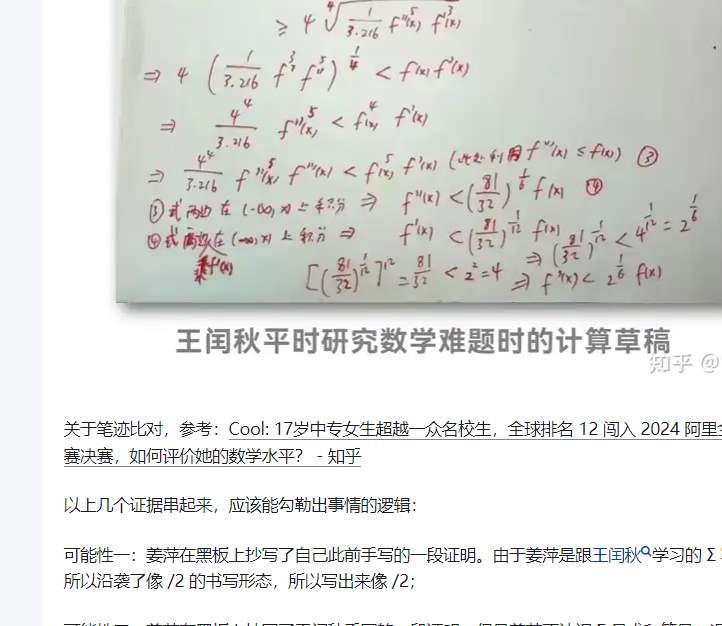 ≥ 4 ⁴√(1/3.216 f''(x)⁵ f'(x)³)
⇒ 4 (1/3.216 f'³ f''⁵)^(1/4) < f(x) f'(x)
⇒ 4⁴/3.216 f''(x)⁵ < f(x)⁴ f'(x)
⇒ 4⁴/3.216 f''(x)⁵ f'''(x) < f(x)⁵ f'(x) (此处利用 f'''(x) ≤ f(x)) ③
③式两边在 (-∞, x) 上积分 ⇒ f''(x) < (81/32)^(1/6) f(x) ④
④式两边在 (-∞, x) 上积分 ⇒ f'(x) < (81/32)^(1/12) f(x) ⇒ (81/32)^(1/12) < 4^(1/12) = 2^(1/6)
乘f'(x)
[(81/32)^(1/12)]¹² = 81/32 < 2² = 4 ⇒ f'(x) < 2^(1/6) f(x)
王闰秋平时研究数学难题时的计算草稿
知乎 @
关于笔迹比对，参考：Cool: 17岁中专女生超越一众名校生，全球排名 12 闯入 2024 阿里
赛决赛，如何评价她的数学水平？ - 知乎
以上几个证据串起来，应该能勾勒出事情的逻辑：
可能性一：姜萍在黑板上抄写了自己此前手写的一段证明。由于姜萍是跟王闰秋学习的 Σ
所以沿袭了像 /2 的书写形态，所以写出来像 /2；